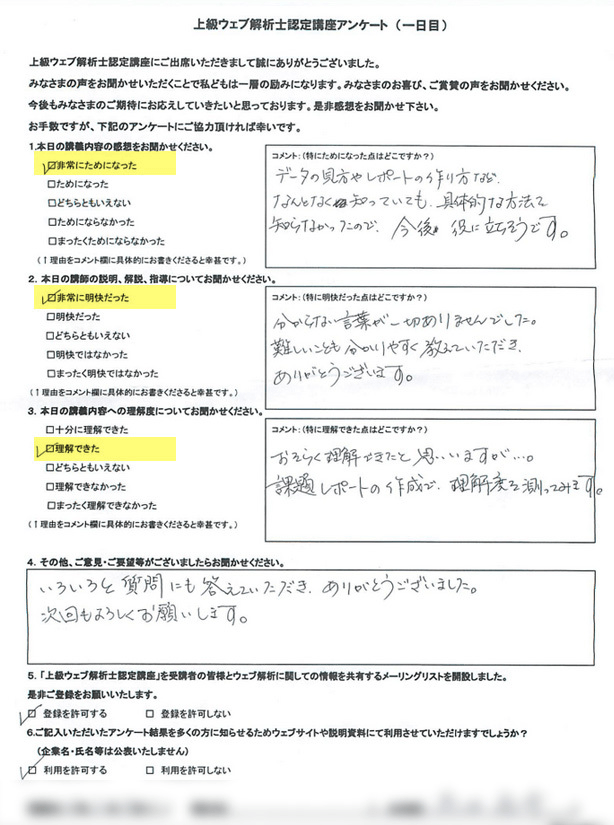 上級ウェブ解析士認定講座アンケート（一日目）
上級ウェブ解析士認定講座にご出席いただきまして誠にありがとうございました。
みなさまの声をお聞かせいただくことで私どもは一層の励みになります。みなさまのお喜び、ご賞賛の声をお聞かせください。
今後もみなさまのご期待にお応えしていきたいと思っております。是非感想をお聞かせ下さい。
お手数ですが、下記のアンケートにご協力頂ければ幸いです。
1.本日の講義内容の感想をお聞かせください。
☑非常にためになった
□ためになった
□どちらともいえない
□ためにならなかった
□まったくためにならなかった
(↑理由をコメント欄に具体的にお書きくださると幸甚です。)
コメント：(特にためになった点はどこですか？)
データの見方やレポートの作り方など、
なんとなく知っていても、具体的な方法を
知らなかったので、今後役に立ちそうです。
2. 本日の講師の説明、解説、指導についてお聞かせください。
☑非常に明快だった
□明快だった
□どちらともいえない
□明快ではなかった
□まったく明快ではなかった
(↑理由をコメント欄に具体的にお書きくださると幸甚です。)
コメント：(特に明快だった点はどこですか？)
分からない言葉が一切ありませんでした。
難しいことも分かりやすく教えていただき、
ありがとうございます。
3. 本日の講義内容への理解度についてお聞かせください。
□十分に理解できた
☑理解できた
□どちらともいえない
□理解できなかった
□まったく理解できなかった
(↑理由をコメント欄に具体的にお書きくださると幸甚です。)
コメント：(特に理解できた点はどこですか？)
おそらく理解できたと思いいますが…。
課題レポートの作成で、理解度を測ってみます。
4. その他、ご意見・ご要望等がございましたらお聞かせください。
いろいろと質問にも答えていただき、ありがとうございました。
次回もよろしくお願いします。
5. 「上級ウェブ解析士認定講座」を受講者の皆様とウェブ解析に関しての情報を共有するメーリングリストを開設しました。
是非ご登録をお願いいたします。
☑ 登録を許可する　□ 登録を許可しない
6.ご記入いただいたアンケート結果を多くの方に知らせるためウェブサイトや説明資料にて利用させていただけますでしょうか？
(企業名・氏名等は公表いたしません)
☑ 利用を許可する　□ 利用を許可しない